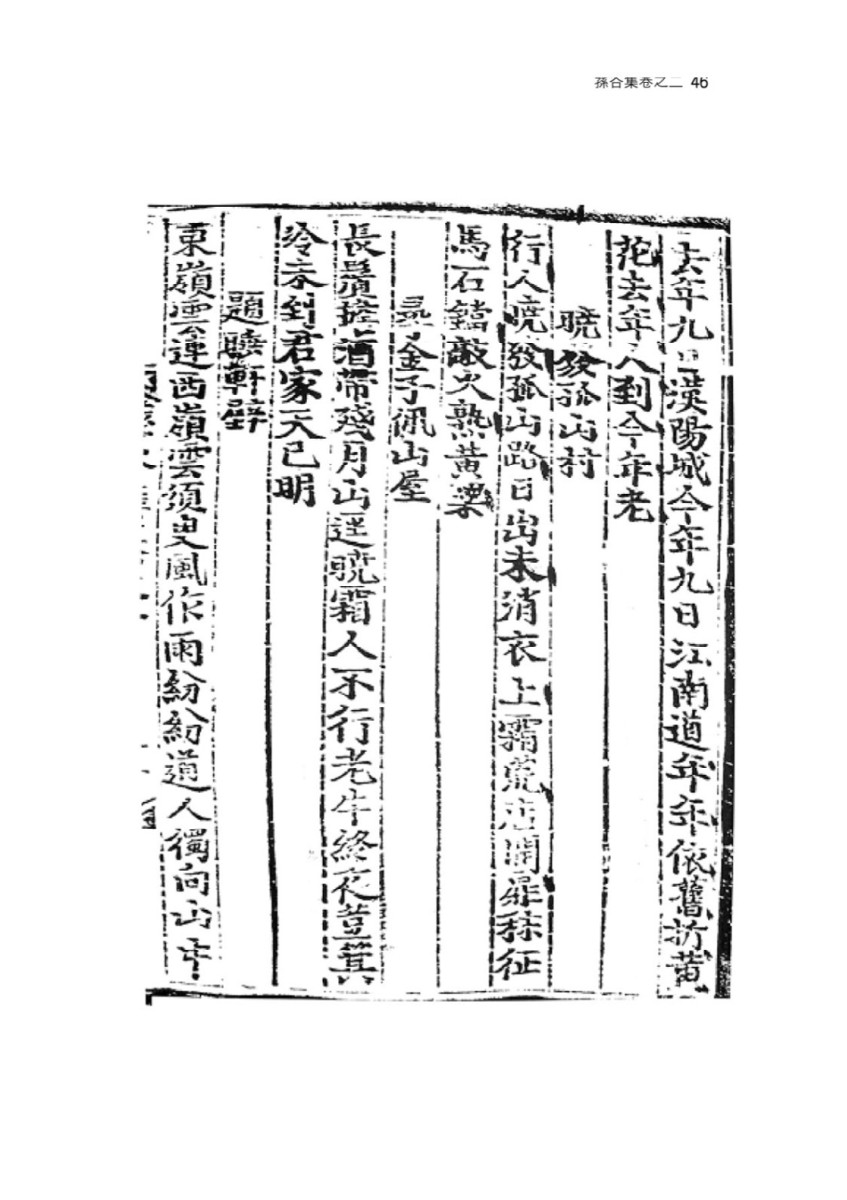 孫合集卷之二 46
去年九日漢陽城今年九日江南道年年依舊折黄
花去年人到今年老
曉發孤山村
行人曉發孤山路日出未消衣上霜荒店開扉秣征
馬石鐺敲火熟黄粱
尋金子佩山屋
長鬚携酒帶殘月山逕曉霜人不行老牛終夜荳萁
冷未到君家天已明
題曉軒壁
東嶺雲連西嶺雲須臾風作雨紛紛道人獨向山中